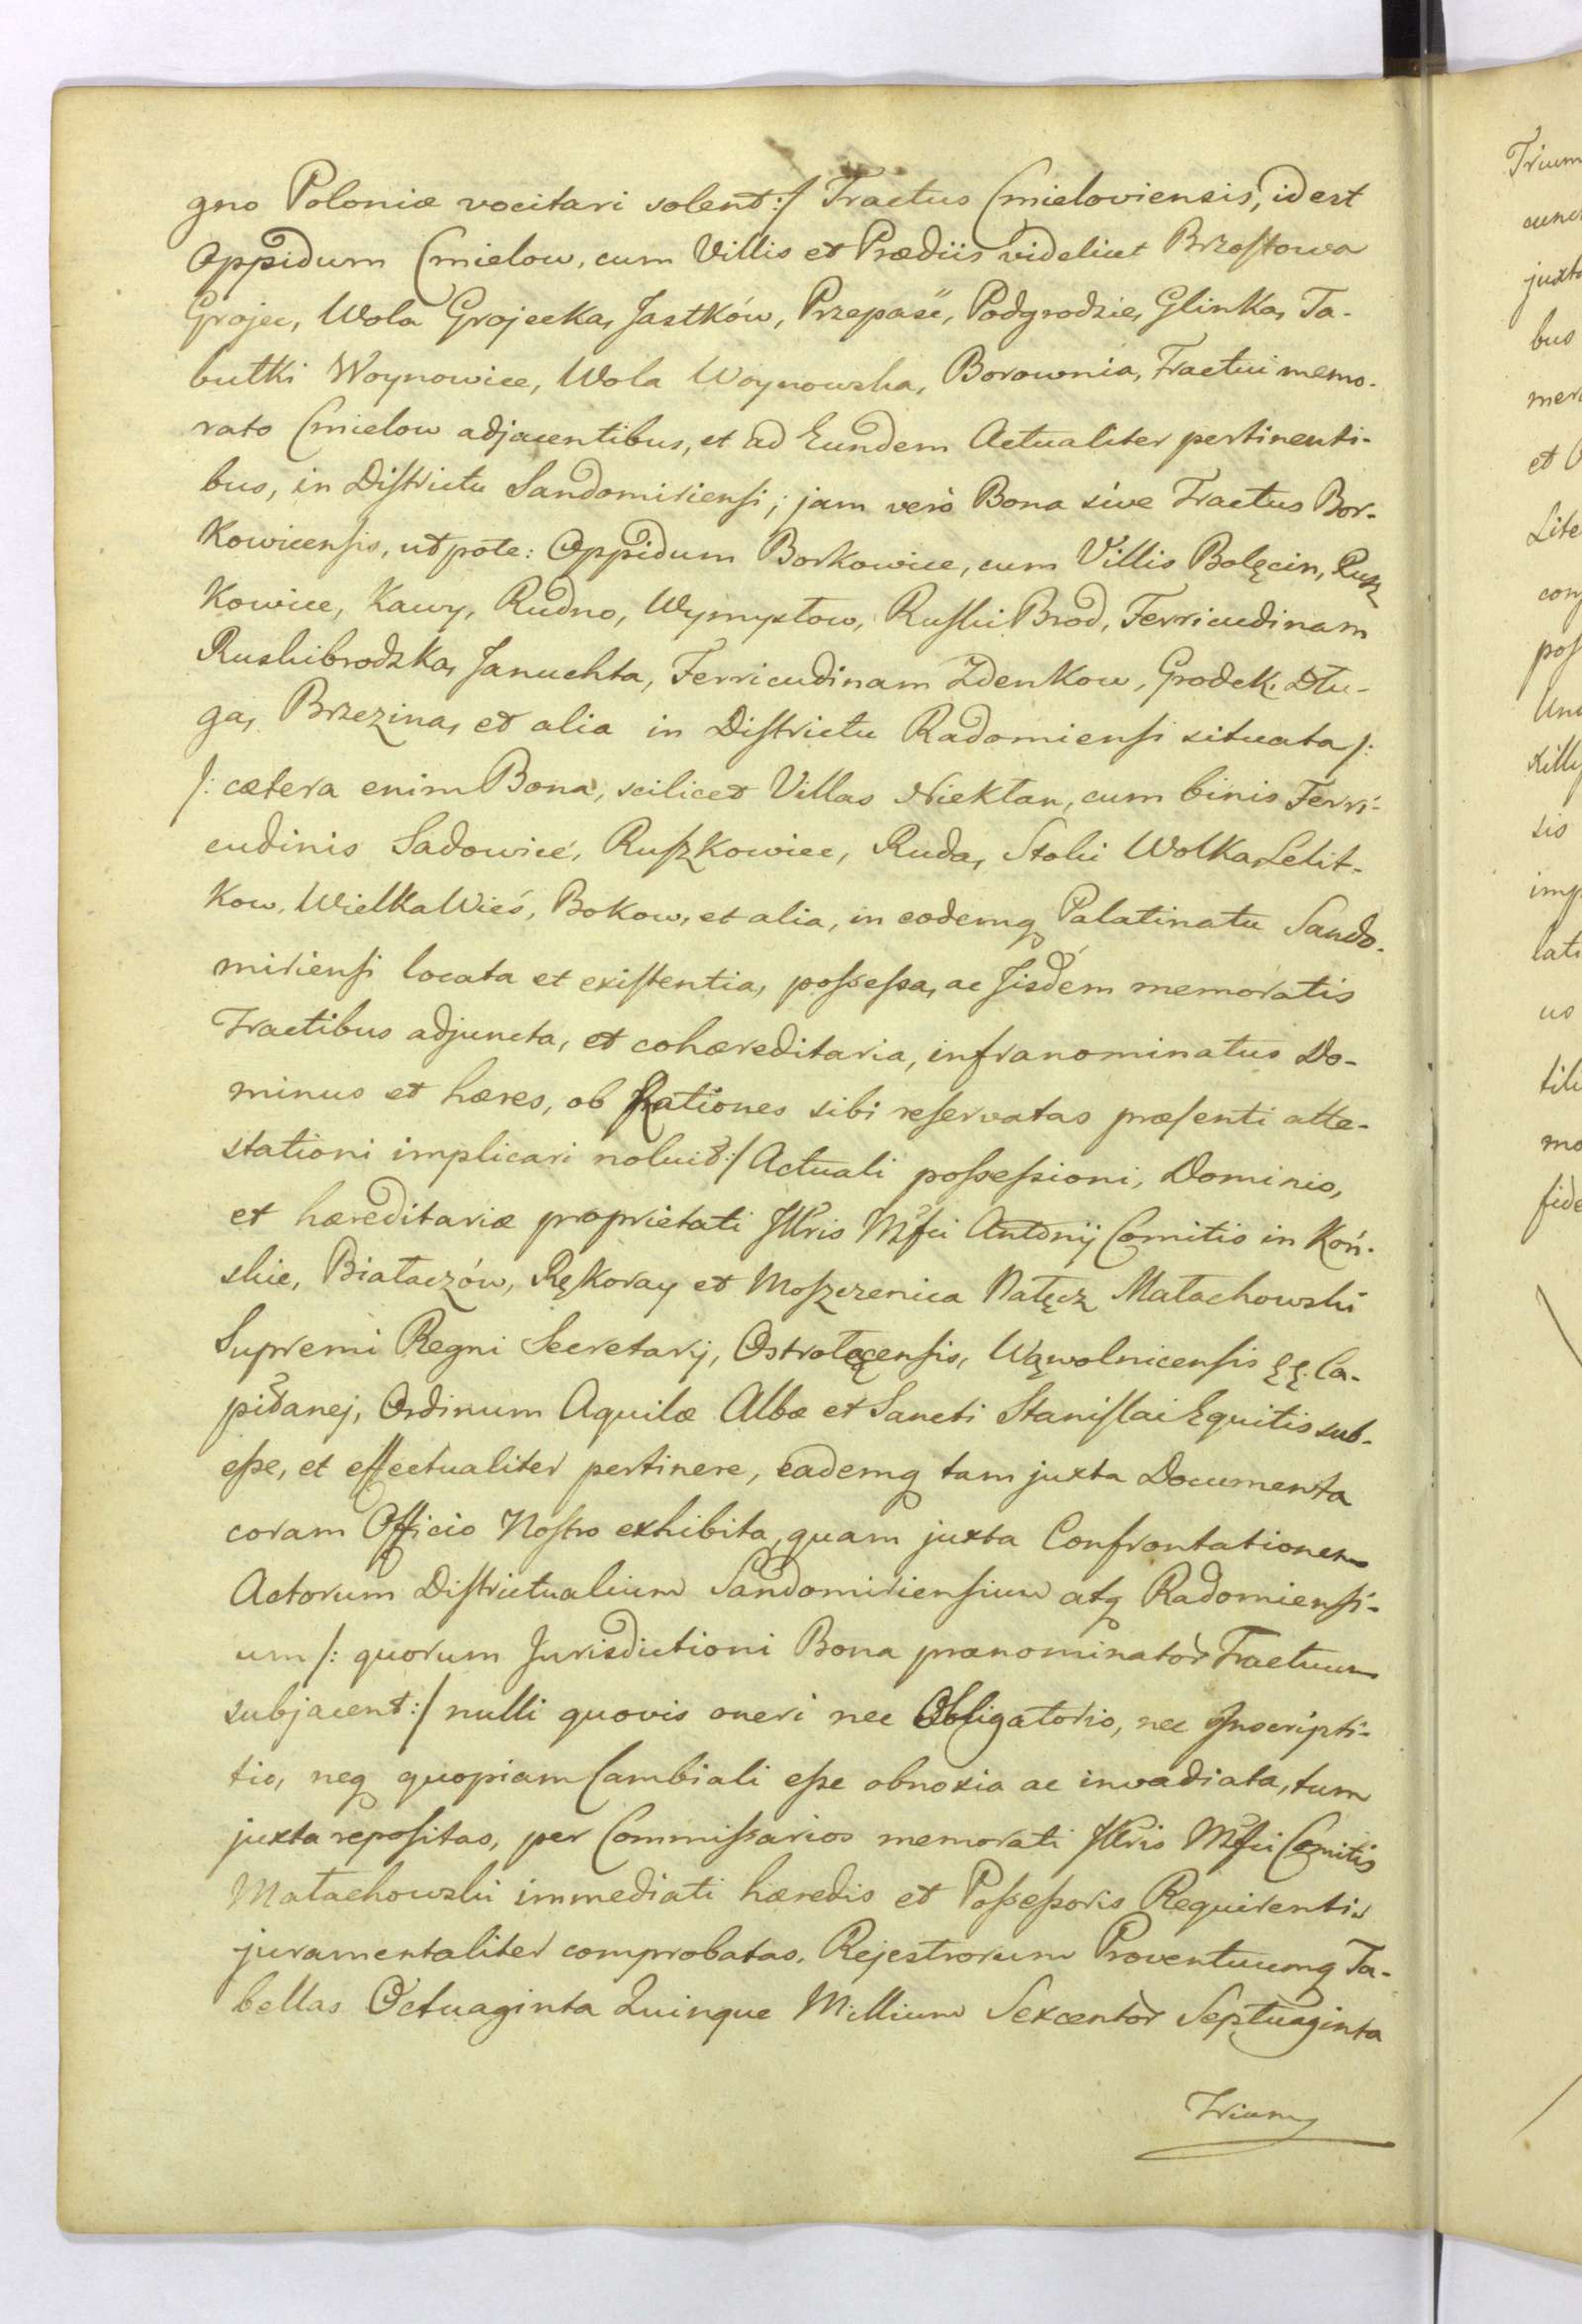 gno Poloniæ vocitari solent :/ Tractus Cmieloviensis, id est
Oppidum Cmielow, cum Villis et Prædiis videlicet Brzostowa
Grojec, Wola Grojecka, Jastków, Przepaść, Podgrodzie, Glinka, Ta-
butki Woynowice, Wola Woynowska, Borownia, Tractui memo-
rato Cmielow adjacentibus, et ad Eundem Actualiter pertinenti-
bus, in Districtu Sandomiriensi; jam verò Bona sive Tractus Bor-
kowicensis, utpote: Oppidum Borkowice, cum Villis Bolęcin, Rusz
kowice, Kawy, Rudno, Wymysłow, Ruski Brod, Ferricudinam
Ruskibrodzka, Januchta, Ferricudinam Zdenkow, Grodek, Dłu-
ga, Brzezina, et alia in Districtu Radomiensi situata /:
/: cætera enim Bona, scilicet Villas Niekłan, cum binis Ferri-
cudinis Sadowice, Ruszkowice, Ruda, Stoki Wolka, Lelit-
kow, Wielka Wieś, Bokow, et alia, in eodemq Palatinatu Sando-
miriensi locata et existentia, possessa, ac Jisdem memoratis
Tractibus adjuncta, et cohæreditaria, infranominatus Do-
minus et hæres, ob Rationes sibi reservatas præsenti atte-
stationi implicari noluit :/ Actuali possessioni, Dominio,
et hæreditariæ proprietati Jllris Mfci Antonij Comitis in Koń-
skie, Białaczów, Rękoray et Moszczenica Nałęcz Małachowski
Supremi Regni Secretarij, Ostrołęcensis, Wąwolnicensis ęę. Ca-
pitanej, Ordinum Aquilæ Albæ et Sancti Stanislai Equitis sub-
esse, et effectualiter pertinere, eademq tam juxta Documenta
coram Officio Nostro exhibita, quam juxta Confrontationem
Actorum Districtualium Sandomiriensium atq Radomiensi-
um /: quorum Jurisdictioni Bona prænominator Tractuum
subjacent :/ nulli quovis oneri nec Obligatorio, nec Inscripti-
tio, neq quopiam Cambiali esse obnoxia ac invadiata, tum
juxta repositas, per Commissarios memorati Jllris Mfci Comitis
Małachowski immediati hæredis et Possessoris Requirentis
juramentaliter comprobatas, Rejestrorum Proventuumq Ta-
bellas Octuaginta Quinque Millium Sexcentòr Septuaginta
Trium